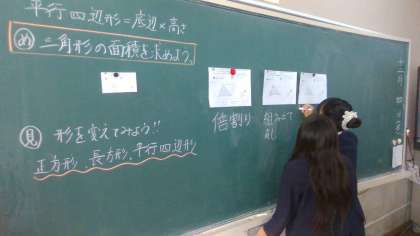 平行四辺形=底辺×高さ
め 三角形の面積を求めよう。
見 形を変えてみよう!!
正方形、長方形、平行四辺形
倍割り